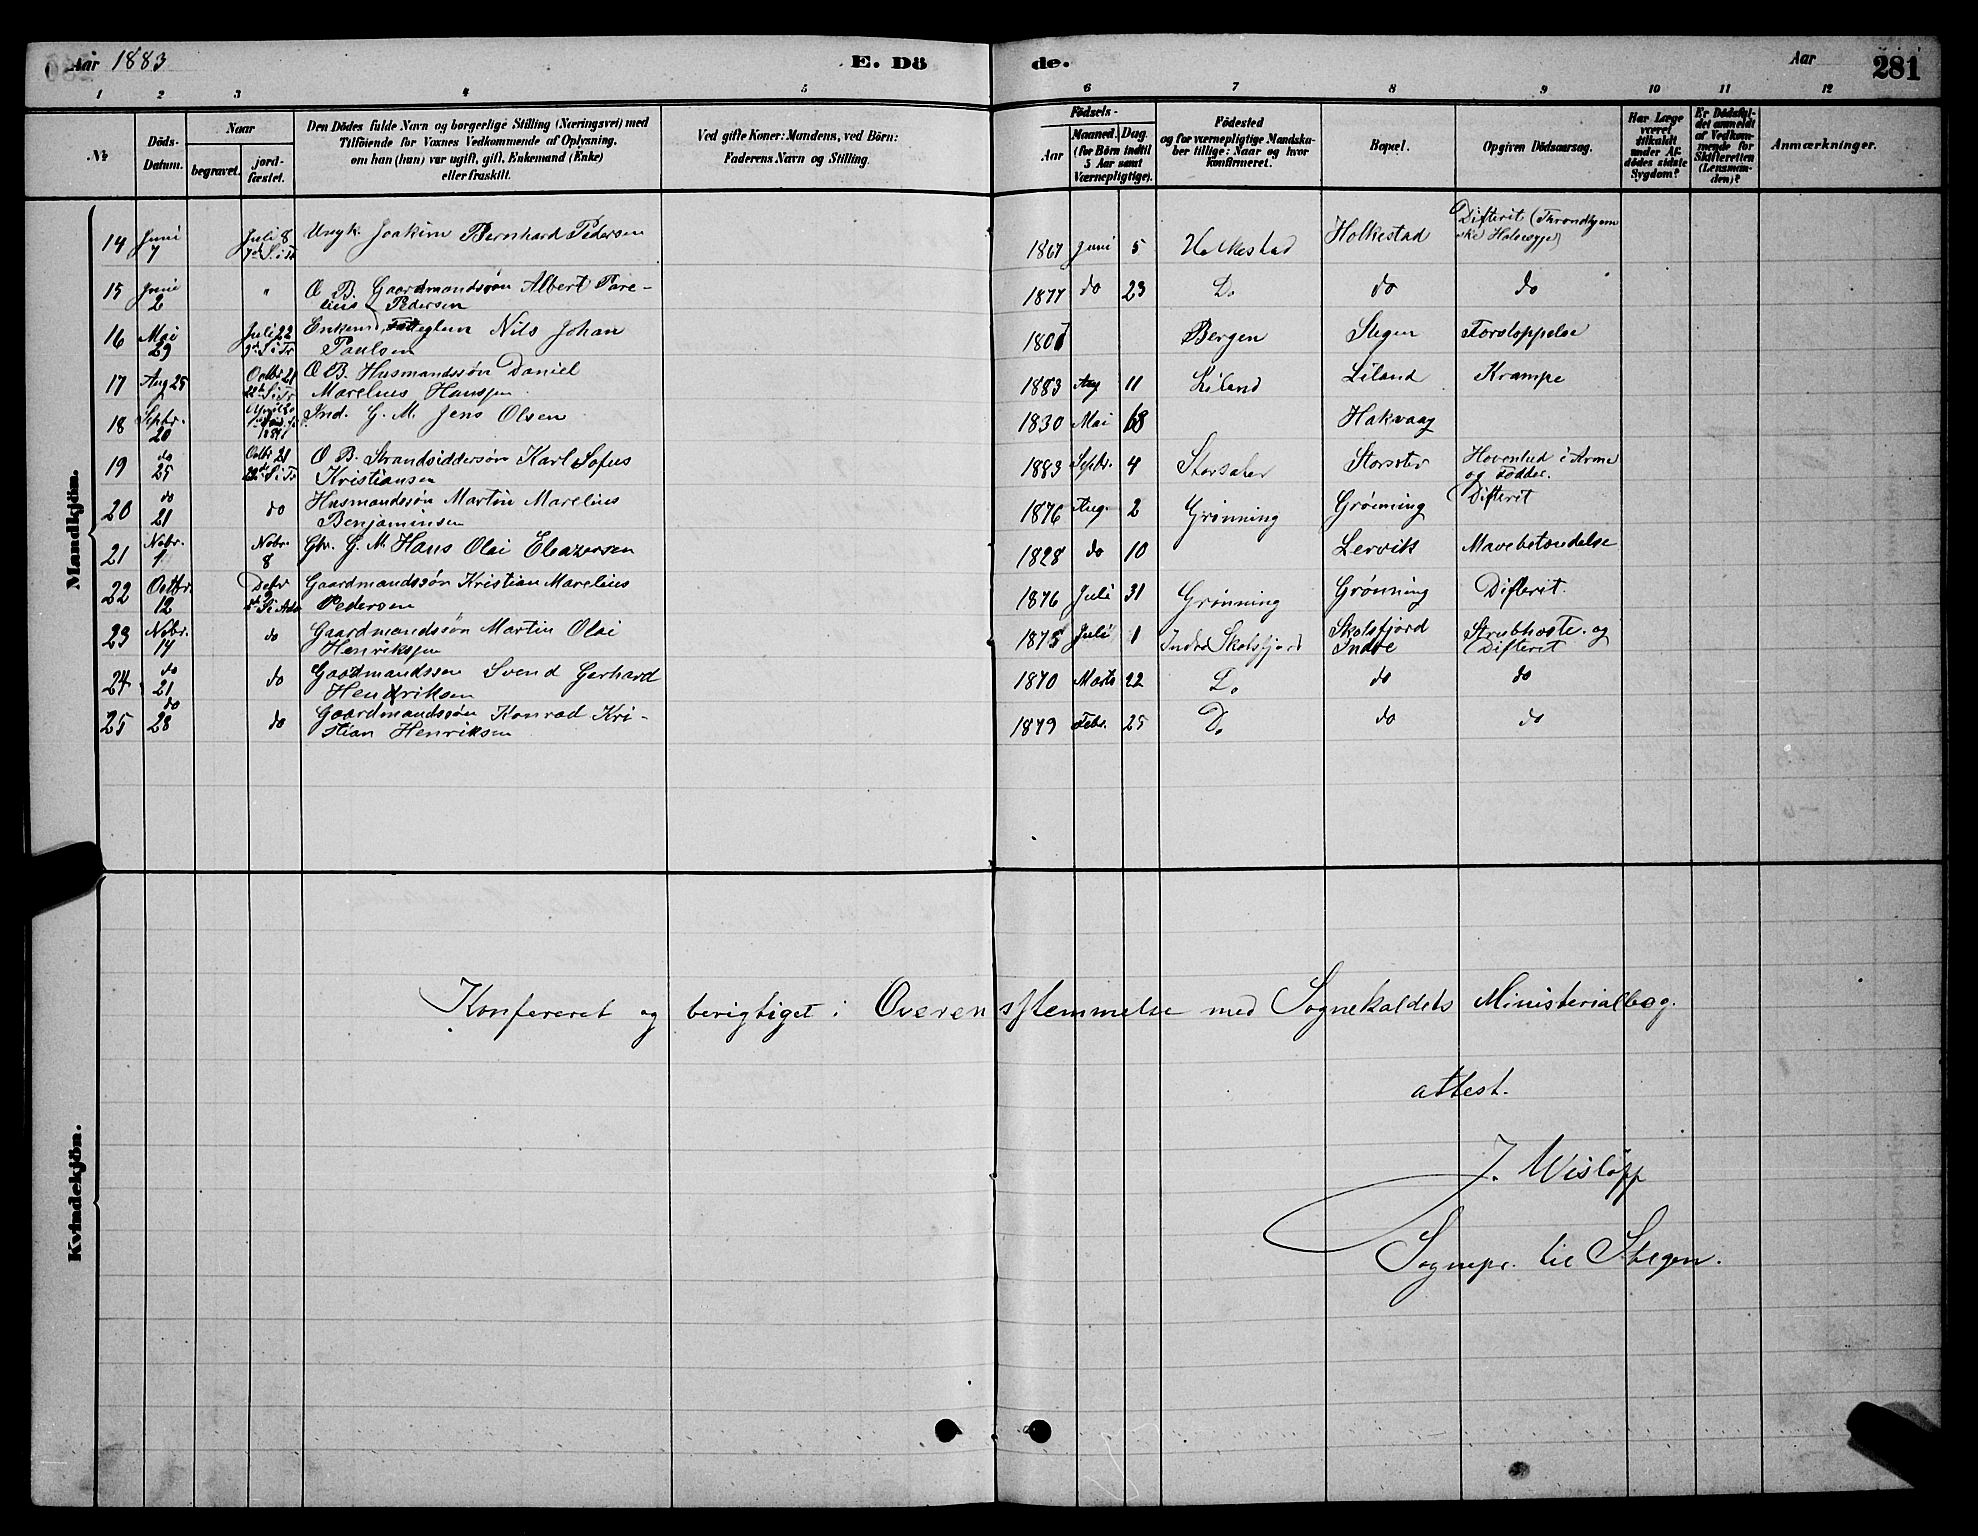 Aar 1883 E. Dö de. Aar 281
1 2 3 4 5 6 7 8 9 10 11 12
No.
Döds-
Datum.
Naar
begravet.
jord-
fæstet.
Den Dödes fulde Navn og borgerlige Stilling (Næringsvei) med
Tilföiende for Voxnes Vedkommende af Oplysning,
om han (hun) var ugift, gift, Enkemand (Enke)
eller fraskilt.
Ved gifte Koner: Mandens, ved Börn:
Faderens Navn og Stilling.
Födsels-
Aar
Maaned. Dag.
(for Börn indtil
5 Aar samt
Værnepligtige).
Födested
og for værnepligtige Mandska-
ber tillige: Naar og hvor
konfirmeret.
Bopæl.
Opgiven Dödsaarsag.
Har Læge
været
tilkaldt
under Af-
dödes sidste
Sygdom?
Er Dödsfal-
det anmeldt
af Vedkom-
mende for
Skifteretten
(Lensman-
den)?
Anmærkninger.
Mandkjön.
14 Juni 7 Juli 8 7de S i Tr Ungk. Joakim Bernhard Pedersen 1867 Juni 5 Holkestad Holkestad Difterit (Throndhjem
ske Halssyge)
15 Juni 2 " O B. Gaardmandssøn Albert Pare-
lius Pedersen 1877 do 23 Do do do
16 Mai 29 Juli 22 9de S i Tr Enkem. Nils Johan
Paulsen 1807 Bergen Stegen Forstoppelse
17 Aug 25 Octbr 21 22de S i Tr O B. Husmandssøn Daniel
Marelius Hanssen 1883 Aug 11 Liland Liland Krampe
18 Septbr. 20 April 20 Ind. G. M. Jens Olsen 1830 Mai 18 Hakvaag
19 do 25 Octbr 21 22de S i Tr O B. Strandsiddersøn Karl Sofus
Kristiansen 1883 Septbr. 4 Storsæter Storsæter Hovenhed i Arme
og Fødder.
20 do 21 do Husmandssøn Martin Marelius
Benjaminsen 1876 Aug. 2 Grønning Grønning Difterit
21 Nobr. 1 Nobr. 8 Gbr. G. M. Hans Olai Eleazersen 1828 do 10 Lervik Mavebetændelse
22 Octbr. 12 Decbr 2 Gaardmandssøn Kristian Marelius
Pedersen 1876 Juli 31 Grønning Grønning Difterit.
23 Nobr. 14 do Gaardmandssøn Martin Olai
Henriksen 1875 Juli 1 Indre Skotsfjord Skotsfjord
Indre Strubhoste og
Difterit
24 do 21 do Gaardmandssøn Svend Gerhard
Hendriksen 1870 Marts 22 Do do do
25 do 28 do Gaardmandssøn Konrad Kri-
stian Henriksen 1879 Febr. 25 Do do do
Kvindekjön.
Konfereret og berigtiget i Overensstemmelse med Sognekaldets Ministerialbog.
attest.
J. Wisløff
Sognepr. til Stegen.